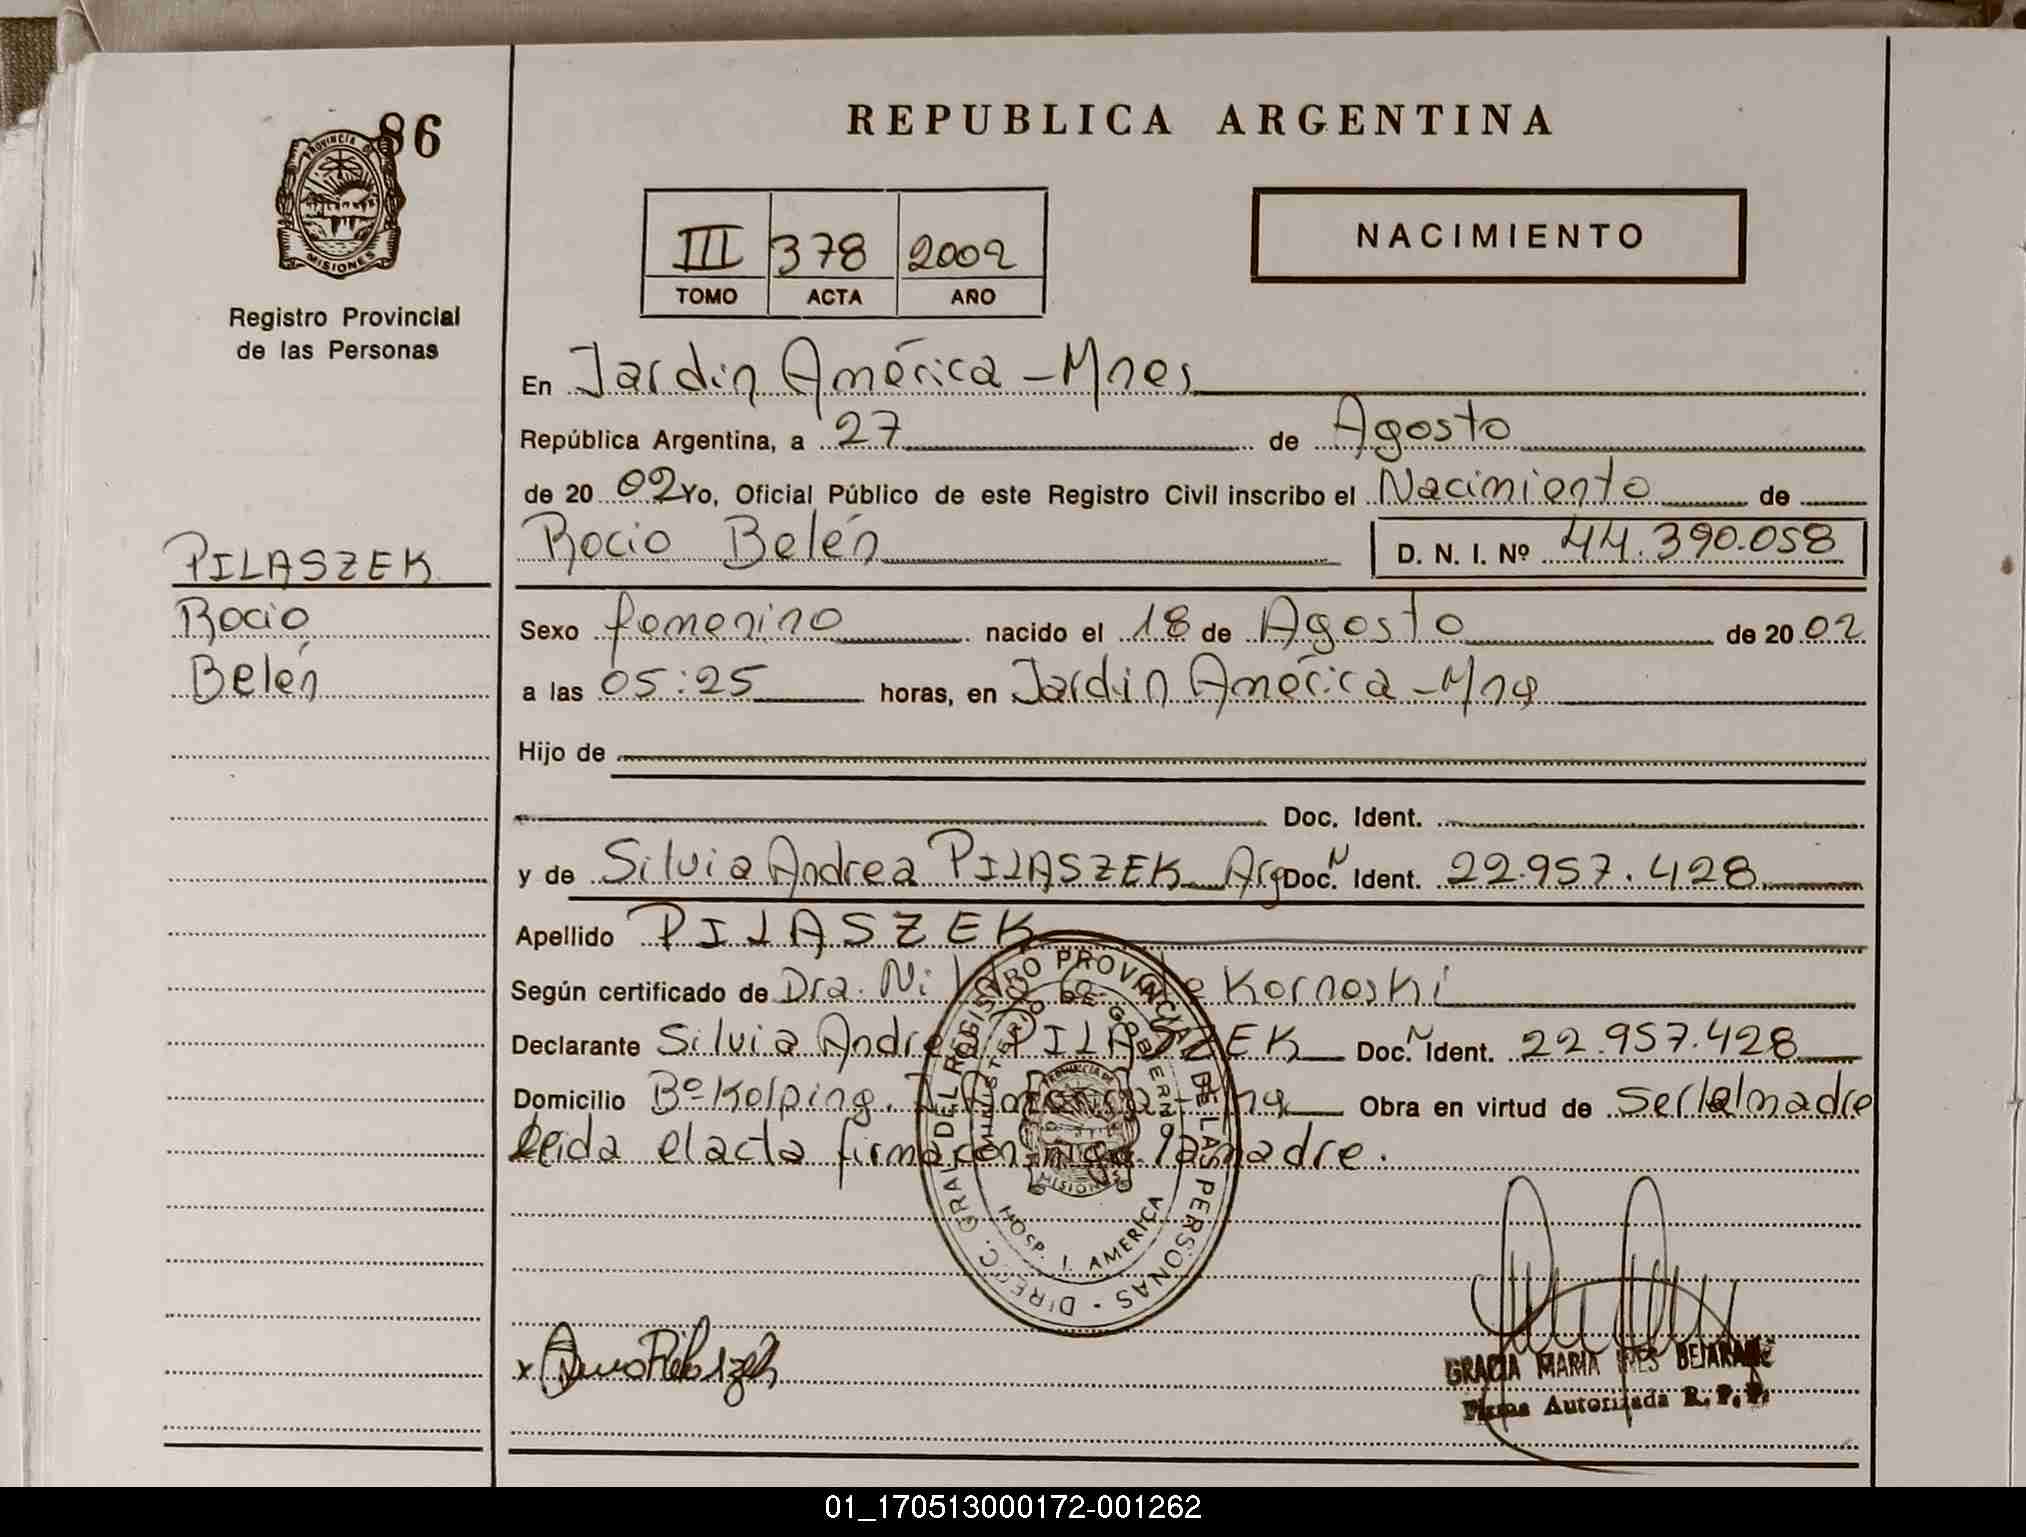 86
REPUBLICA ARGENTINA
PROVINCIA DE
MISIONES
Registro Provincial
de las Personas
III 378 2002
TOMO ACTA AÑO
NACIMIENTO
En Jardin América - Mnes
República Argentina, a 27 de Agosto
de 20 02 Yo, Oficial Público de este Registro Civil inscribo el Nacimiento de
Rocio Belén D. N. I. Nº 44.390.058
PILASZEK
Rocio
Belén
Sexo femenino nacido el 18 de Agosto de 20 02
a las 05:25 horas, en Jardin América - Mnes
Hijo de
Doc. Ident.
y de Silvia Andrea PILASZEK ArgN Doc. Ident. 22.957.428
Apellido PILASZEK
Según certificado de Dra. de Korneski
Declarante Silvia Andrea PILASZEK Doc.N Ident. 22.957.428
Domicilio Bº Kolping. J. América - Mnes Obra en virtud de Ser la madre
Leida el acta firma conmigo la madre.
DIRECC. GRAL. DEL REGISTRO PROVINCIAL DE LAS PERSONAS
MINISTERIO DE GOBIERNO
HOSP. J. AMERICA
PROVINCIA DE
MISIONES
x Pilaszek
GRACIA MARIA INES BEJARANO
Firma Autorizada R. P. P.
01_170513000172-001262